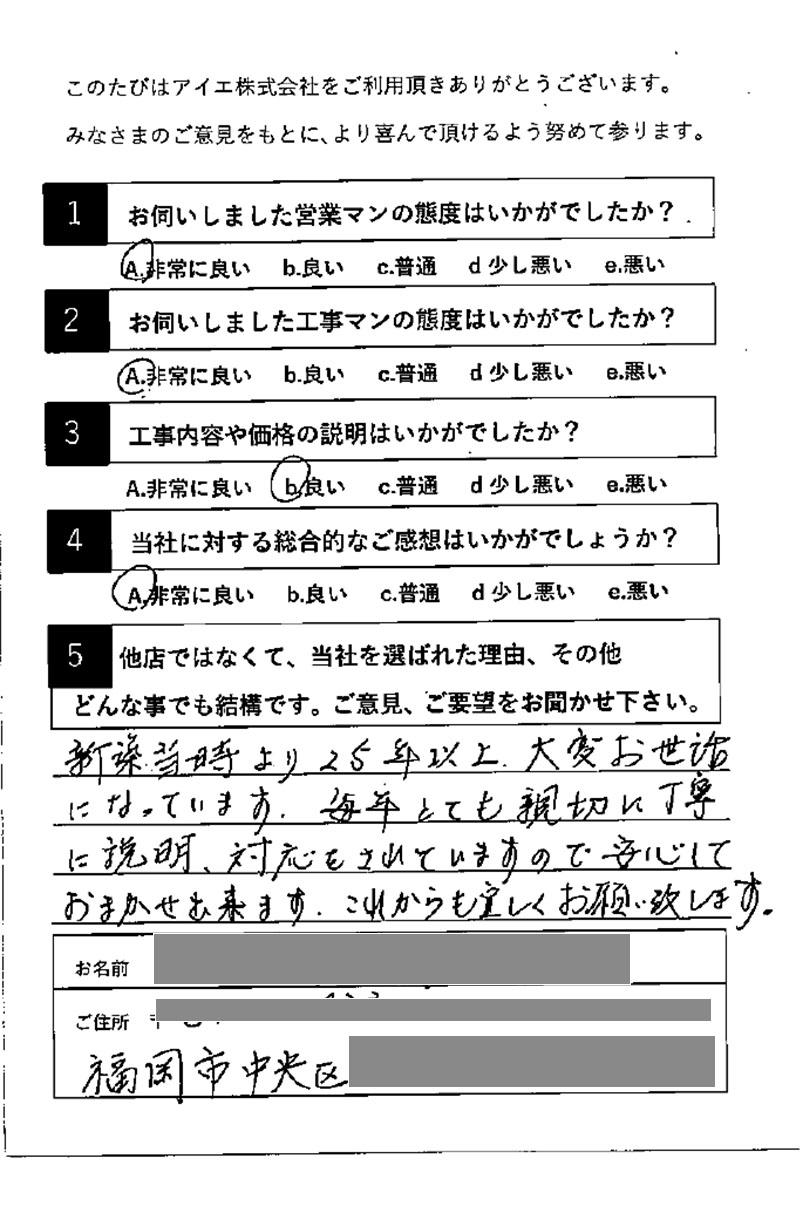 このたびはアイエ株式会社をご利用頂きありがとうございます。
みなさまのご意見をもとに、より喜んで頂けるよう努めて参ります。
1 お伺いしました営業マンの態度はいかがでしたか?
A.非常に良い b.良い c.普通 d 少し悪い e.悪い
2 お伺いしました工事マンの態度はいかがでしたか?
A.非常に良い b.良い c.普通 d 少し悪い e.悪い
3 工事内容や価格の説明はいかがでしたか?
A.非常に良い b.良い c.普通 d 少し悪い e.悪い
4 当社に対する総合的なご感想はいかがでしょうか?
A.非常に良い b.良い c.普通 d 少し悪い e.悪い
5 他店ではなくて、当社を選ばれた理由、その他
どんな事でも結構です。ご意見、ご要望をお聞かせ下さい。
新築当時より25年以上、大変お世話
になっています。毎年とても親切に丁寧
に説明、対応をされていますので安心して
おまかせ出来ます。これからも宜しくお願い致します。
お名前
ご住所
福岡市中央区